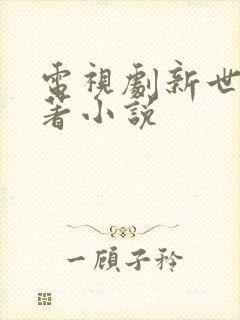 電視劇新世
著小說
一顧子矜